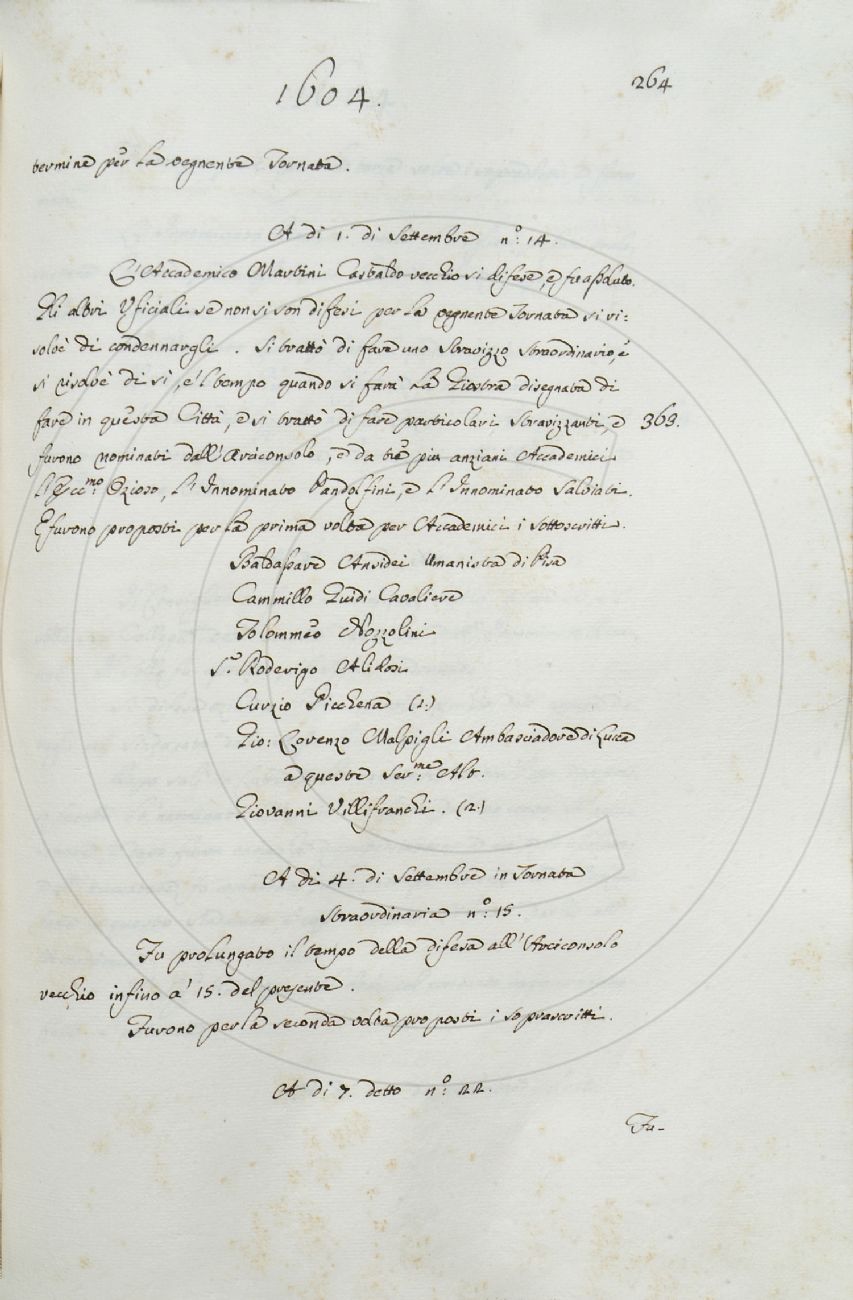 1604.
264
termine per la segnente Tornata.
A di 1. di Settembre n.° 14.
L'Accademico Martini Castaldo vecchio si difese, e fu assoluto.
Gli altri Uficiali se non si son difesi per la segnente Tornata si ri:
solvè di condennargli. Si trattò di fare uno Stravizzo straordinario, e
si risolvè di sì, e 'l tempo quando si farà la Giostra disegnata di
fare in questa Città, e si trattò di fare particolari Stravizzanti, e 363.
furono nominati dall'Arciconsolo, e da tre più anziani Accademici
l'Ecc.mo Ozioso, l'Innominato Pandolfini, e l'Innominato Salviati.
E furono proposti per la prima volta per Accademici i sottoscritti.
Baldassare Ansidei Umanista di Pisa
Cammillo Guidi Cavaliere
Tolommeo Nozzolini
S.r Roderigo Alidosi
Curzio Picchena (1.)
Gio: Lorenzo Malpigli Ambasciadore di Lucca
a queste Ser:me Alt.
Giovanni Villifranchi. (2.)
A di 4. di Settembre in Tornata
straordinaria n.° 15.
Fu prolungato il tempo della difesa all'Arciconsolo
vecchio infino a' 15. del presente.
Furono per la seconda volta proposti i soprascritti.
A di 7. detto n.° 22.
Fu-